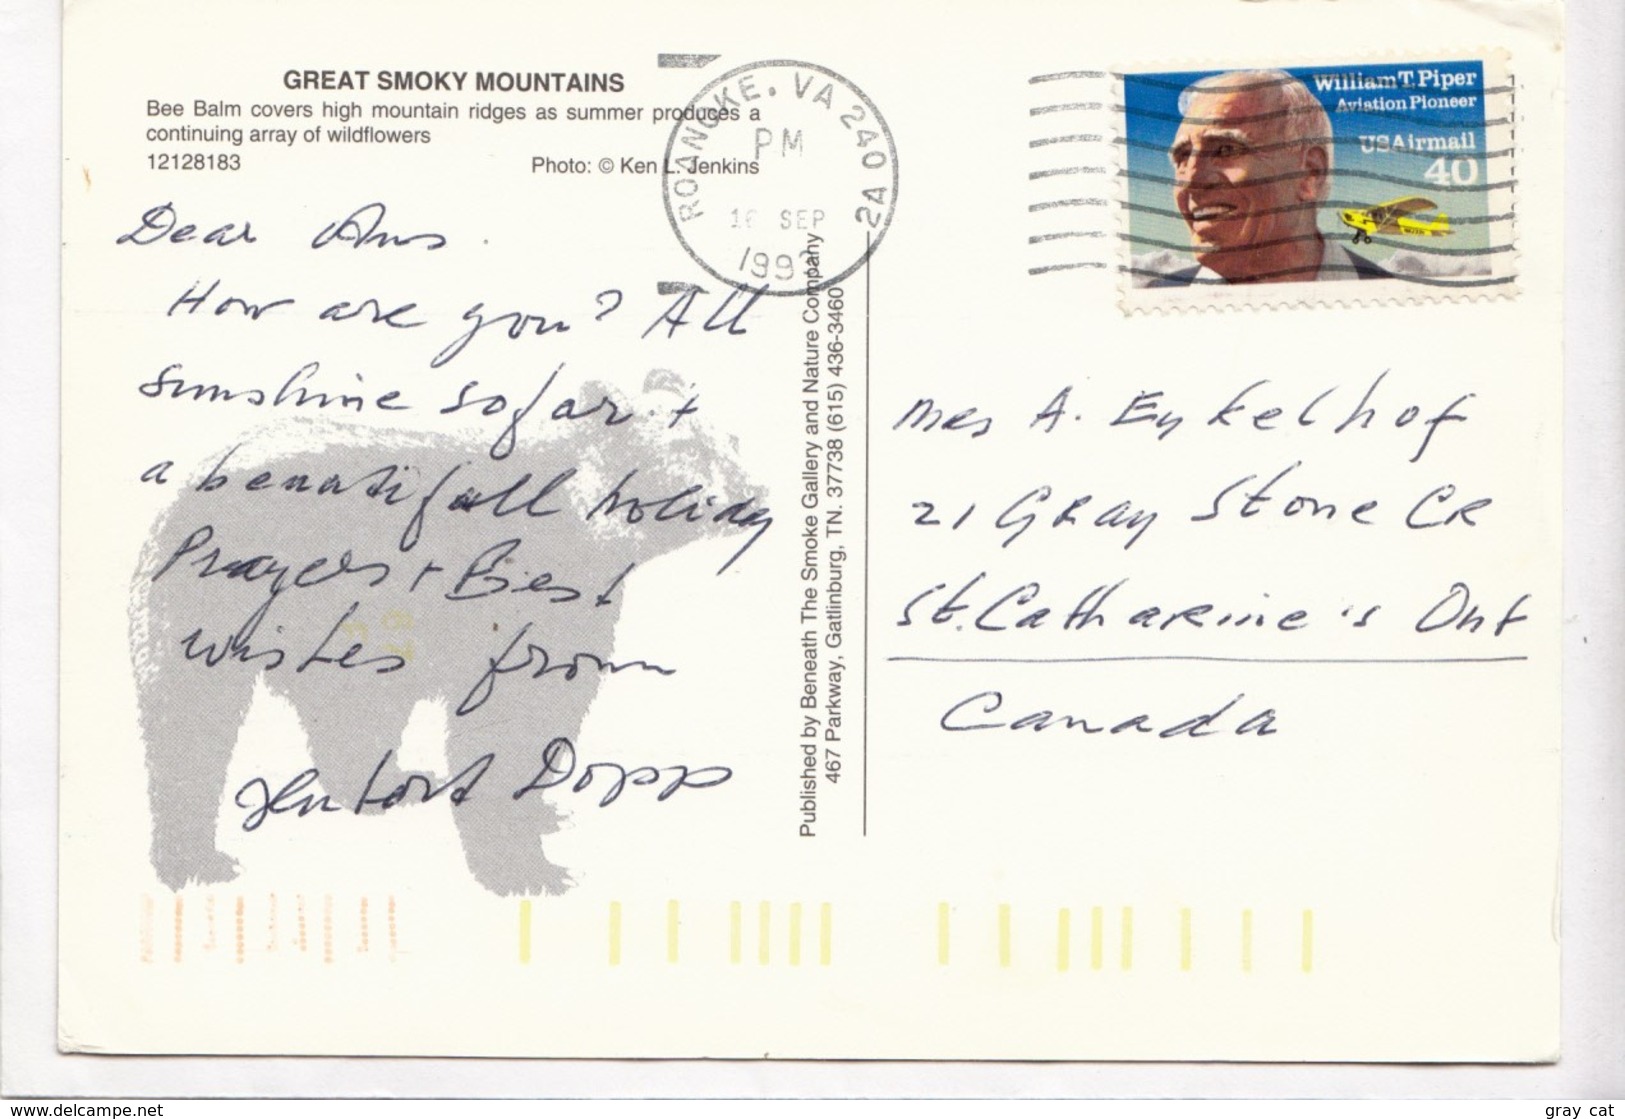 GREAT SMOKY MOUNTAINS
Bee Balm covers high mountain ridges as summer produces a
continuing array of wildflowers
12128183 Photo: © Ken L. Jenkins
Dear
How are you? All
sunshine so far +
a beautifull holiday
Prayers + Best
wishes from
Dopp
Published by Beneath The Smoke Gallery and Nature Company
467 Parkway, Gatlinburg, TN. 37738 (615) 436-3460
ROANOKE, VA 240
PM
SEP
William T. Piper
Aviation Pioneer
USAirmail
40
Mrs A. Eykelhof
21 Gray Stone CR
St. Catharine's Ont
Canada
www.delcampe.net
gray cat